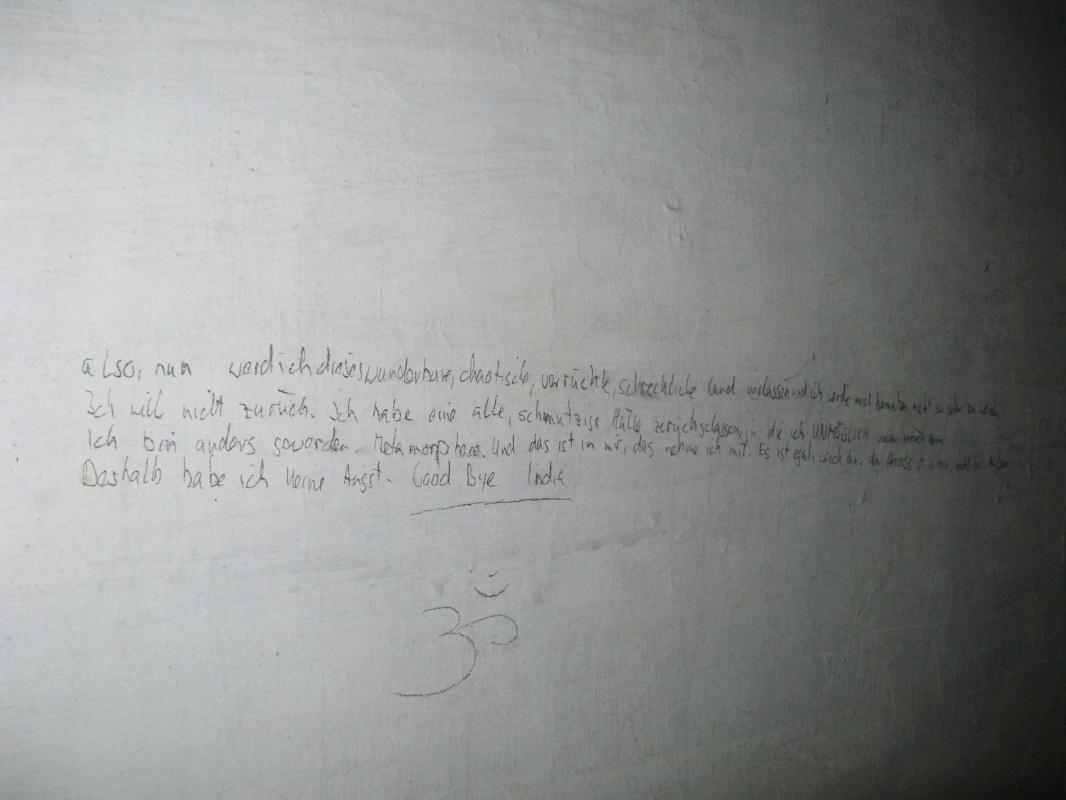 also, nun werd ich dieses wunderbare, chaotische, verrückte, schreckliche Land verlassen und ich werde mich bemühen, nicht zu sehr zu weinen
Ich will nicht zurück. Ich habe eine alte, schmutzige Hülle zurückgelassen, in die ich UNMÖGLICH
Ich bin anders geworden. Metamorphose. Und das ist in mir, das nehme ich mit. Es ist egal, wo ich bin, der
Deshalb habe ich keine Angst. Good Bye India
ॐ